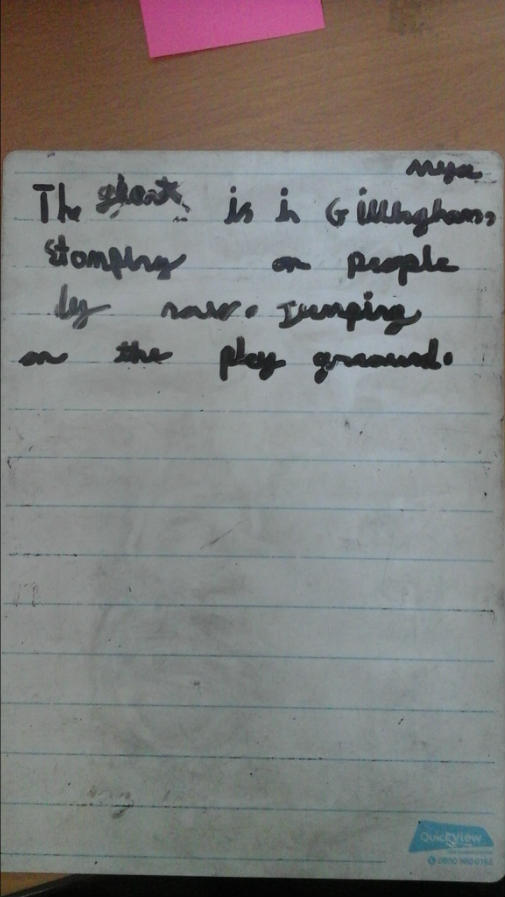 mya
The giant is in Gillingham,
Stomping on people
by now. Jumping
on the play ground.
QuickView